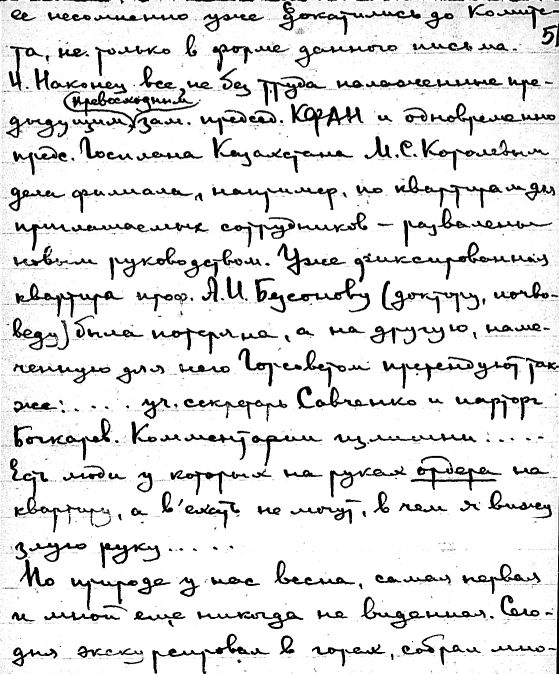 ее несомненно уже докатились до Комите-
5
та, не только в форме данного письма.
4. Наконец все, не без труда налаженные пре-
превосходным
дыдущим, зам. председ. КФАН и одновременно
предс. Госплана Казахстана М.С. Королевым
дела филиала, например, по квартирам для
приглашаемых сотрудников – развалены
новым руководством. Уже фиксированная
квартира проф. А.И. Безсонову (доктору, почво-
веду) была потеряна, а на другую, наме-
ченную для него Горсоветом претендуют так-
же: .... уч. секретарь Савченко и парторг
Бочкарев. Комментарии излишни.....
Есть люди у которых на руках ордера на
квартиру, а в'ехать не могут, в чем я вижу
злую руку.....
По природе у нас весна, самая первая
и мной еще никогда не виденная. Сего-
дня экскурсировал в горах, собрал мно-